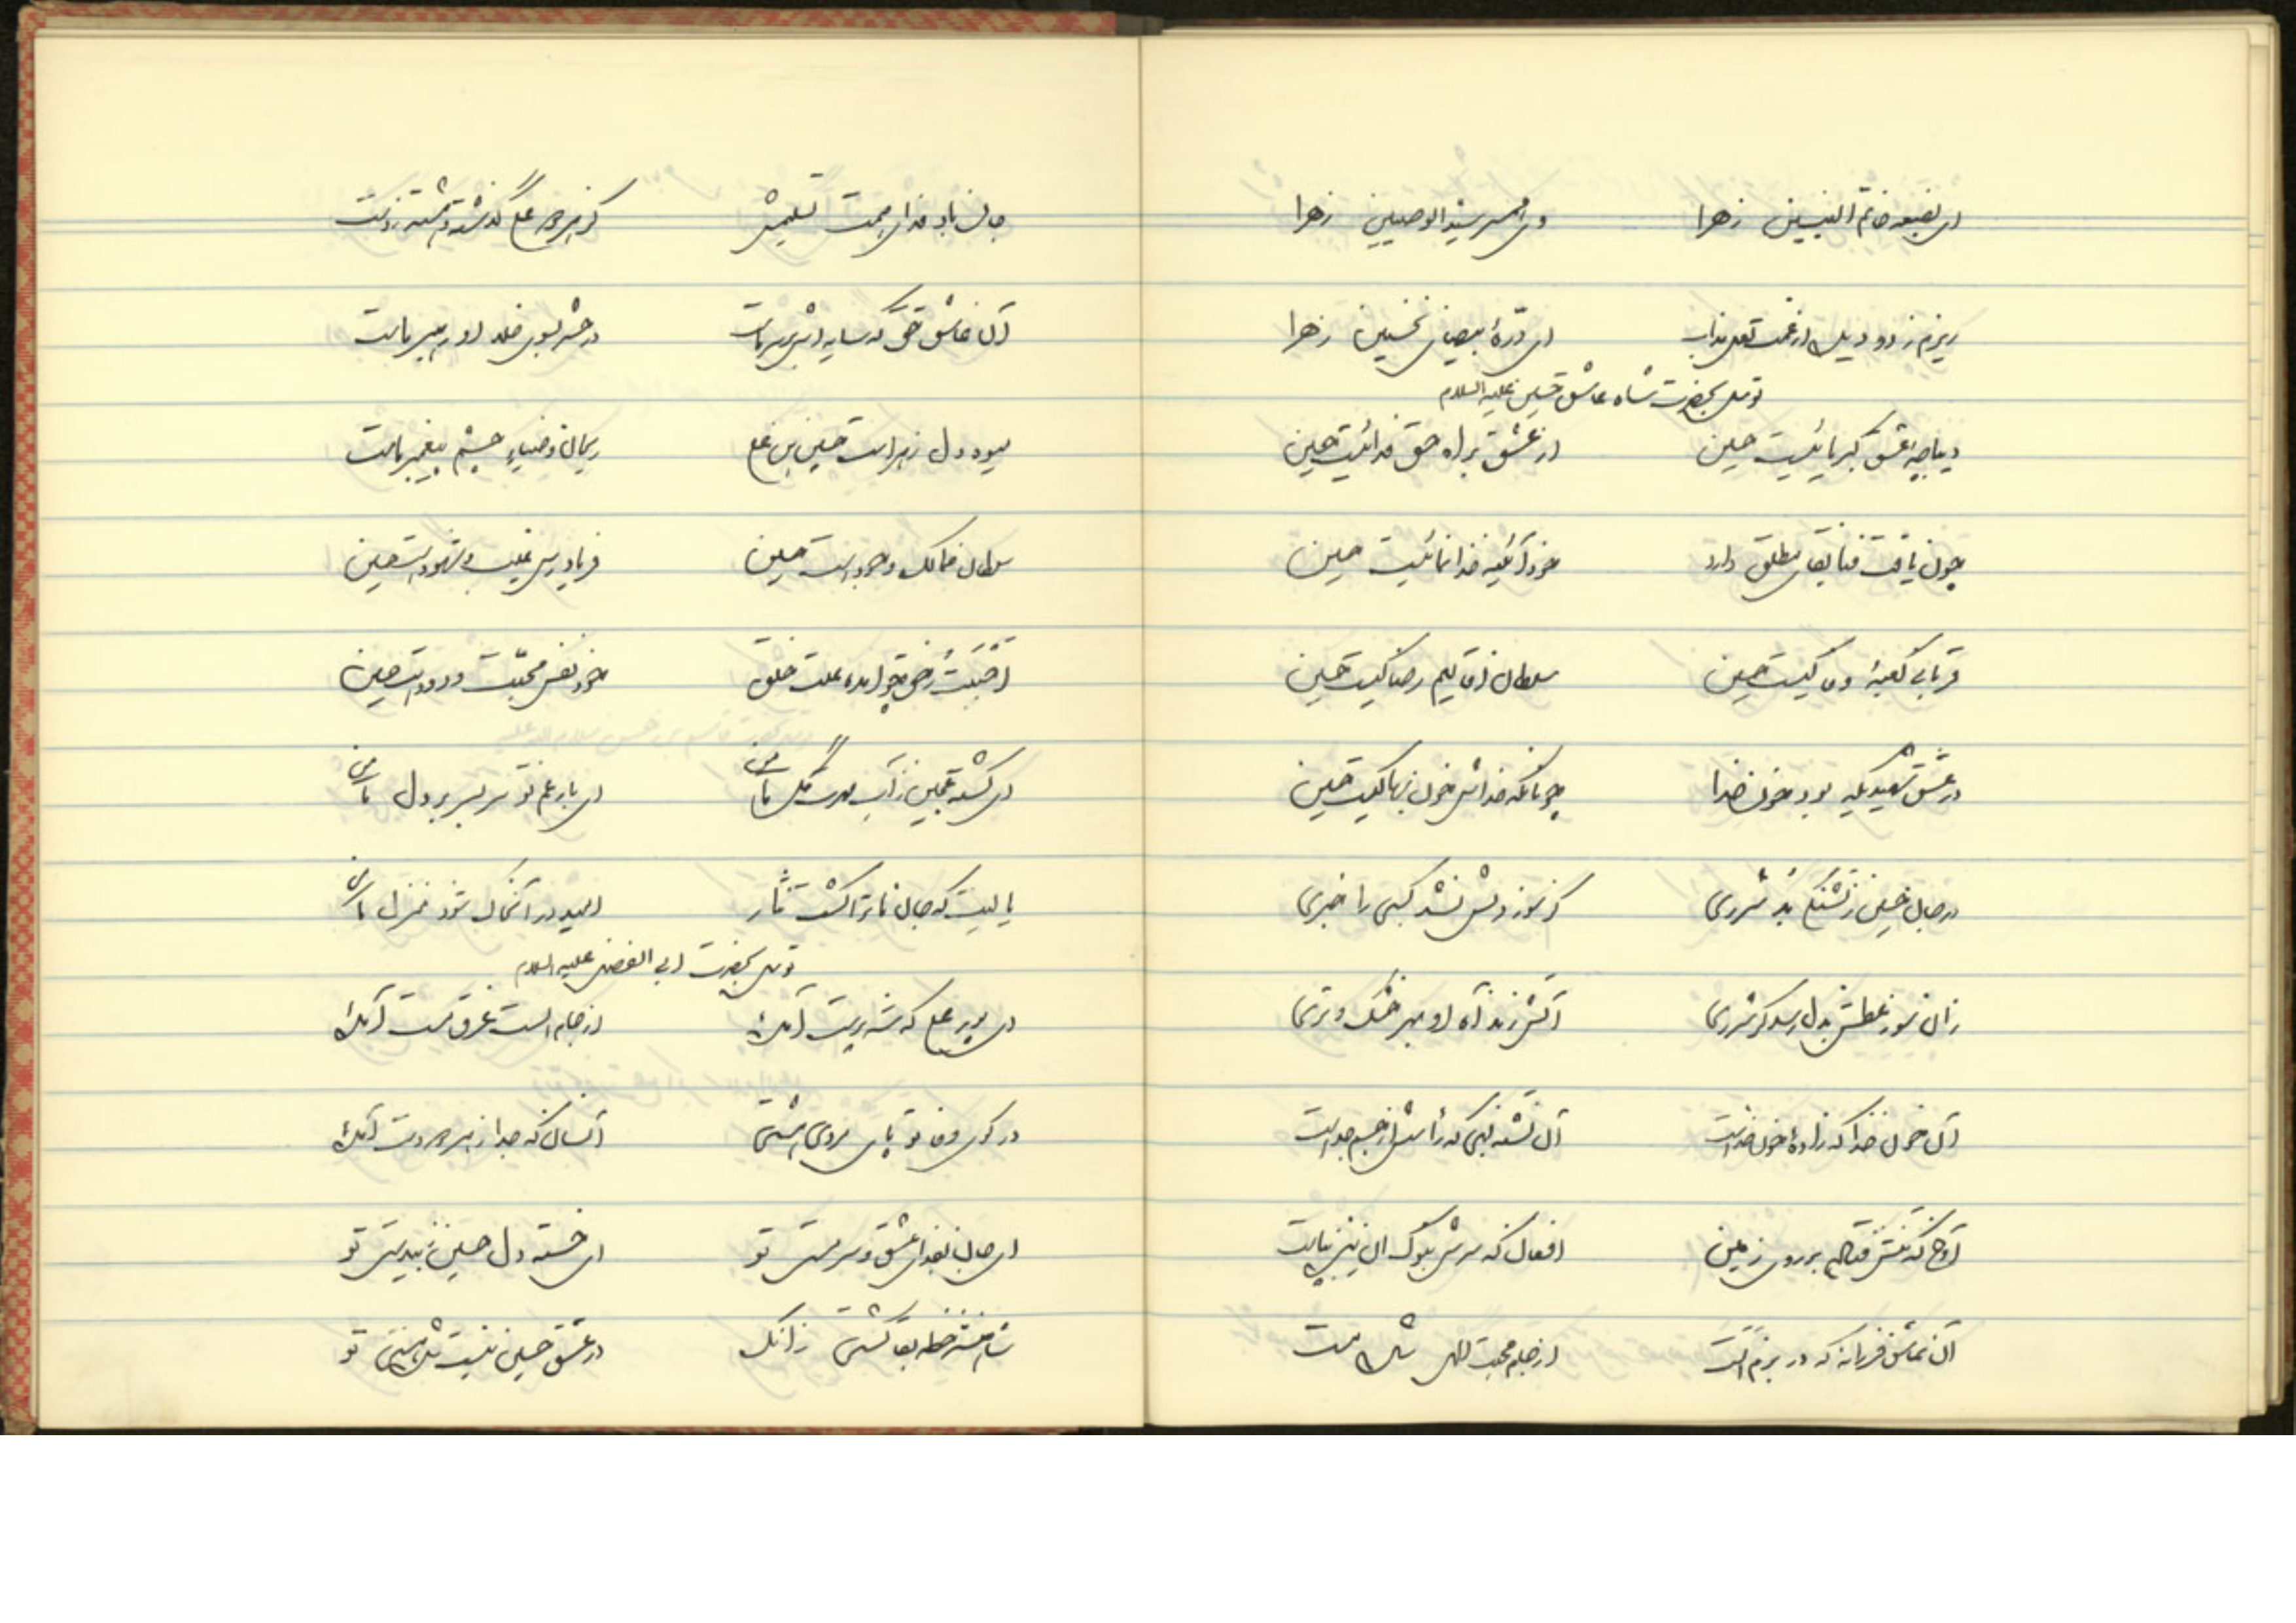 ای بضعه خاتم النبیین زهرا وی همسر سید الوصیین زهرا
ریزم ز دو دیده از غمت لعل مذاب ای درّهٔ بیضای نخستین زهرا
توسل بحضرت شاه عاشق حسین علیه السلام
دیباچهٔ عشق کبریائیست حسین از عشق براه حق فدائیست حسین
چون یافت فنا بقای مطلق دارد خود آئینه خدا نمائیست حسین
قربانی کعبهٔ کیست حسین سلطان اقالیم رضا کیست حسین
در عشق شهیدیکه بود خون خدا چونانکه خدایش خون بها کیست حسین
در جان حسین ز تشنگی بد شرری کز سوز دلش نشد کسی را خبری
زان سوز عطش بدل رسد گر شرری آتش زند آه او بهر خشک و تری
آن خون خدا که زادهٔ خون خداست آن تشنه لبی که رأسش از جسم جداست
آوخ که تنش فتاده بر روی زمین افغان که سرش بنوک نی نیز بپاست
آن عاشق فرزانه که در بزم الست از جام محبت الهی شده مست
جان باد فدای همت تسلیمش گذشته دست
آن عاشق حق که سایه اش بر سر ماست در حشر بسوی خلد او رهبر ماست
میوه دل زهراست حسین بن علی ریحان و ضیاء چشم پیغمبر ماست
سلطان ممالک وجود است حسین فریادرس غیب و شهود است حسین
احببت رخی چو آمده علت خلق خود نفس محبت و ودود است حسین
ای کشته عجین ز آب مهرت گل ما ای بار غم تو سر بسر بر دل ما
یا لیت که جان ما ترا گشت نثار امید در آنجهان شود منزل ما
توسل بحضرت ابی الفضل علیه السلام
ای پور علی که شه پرست آمده از جام الست غرق مست آمده
در کوی وفا تو پای مردی هستی آنسان که جدا ز پیکر دست آمده
ای جان بفدای عشق و سرمستی تو ای خسته دل حسین ز بیدستی تو
شاهنشه خطه بقا گشتی زانک در عشق حسین نیست شد هستی تو